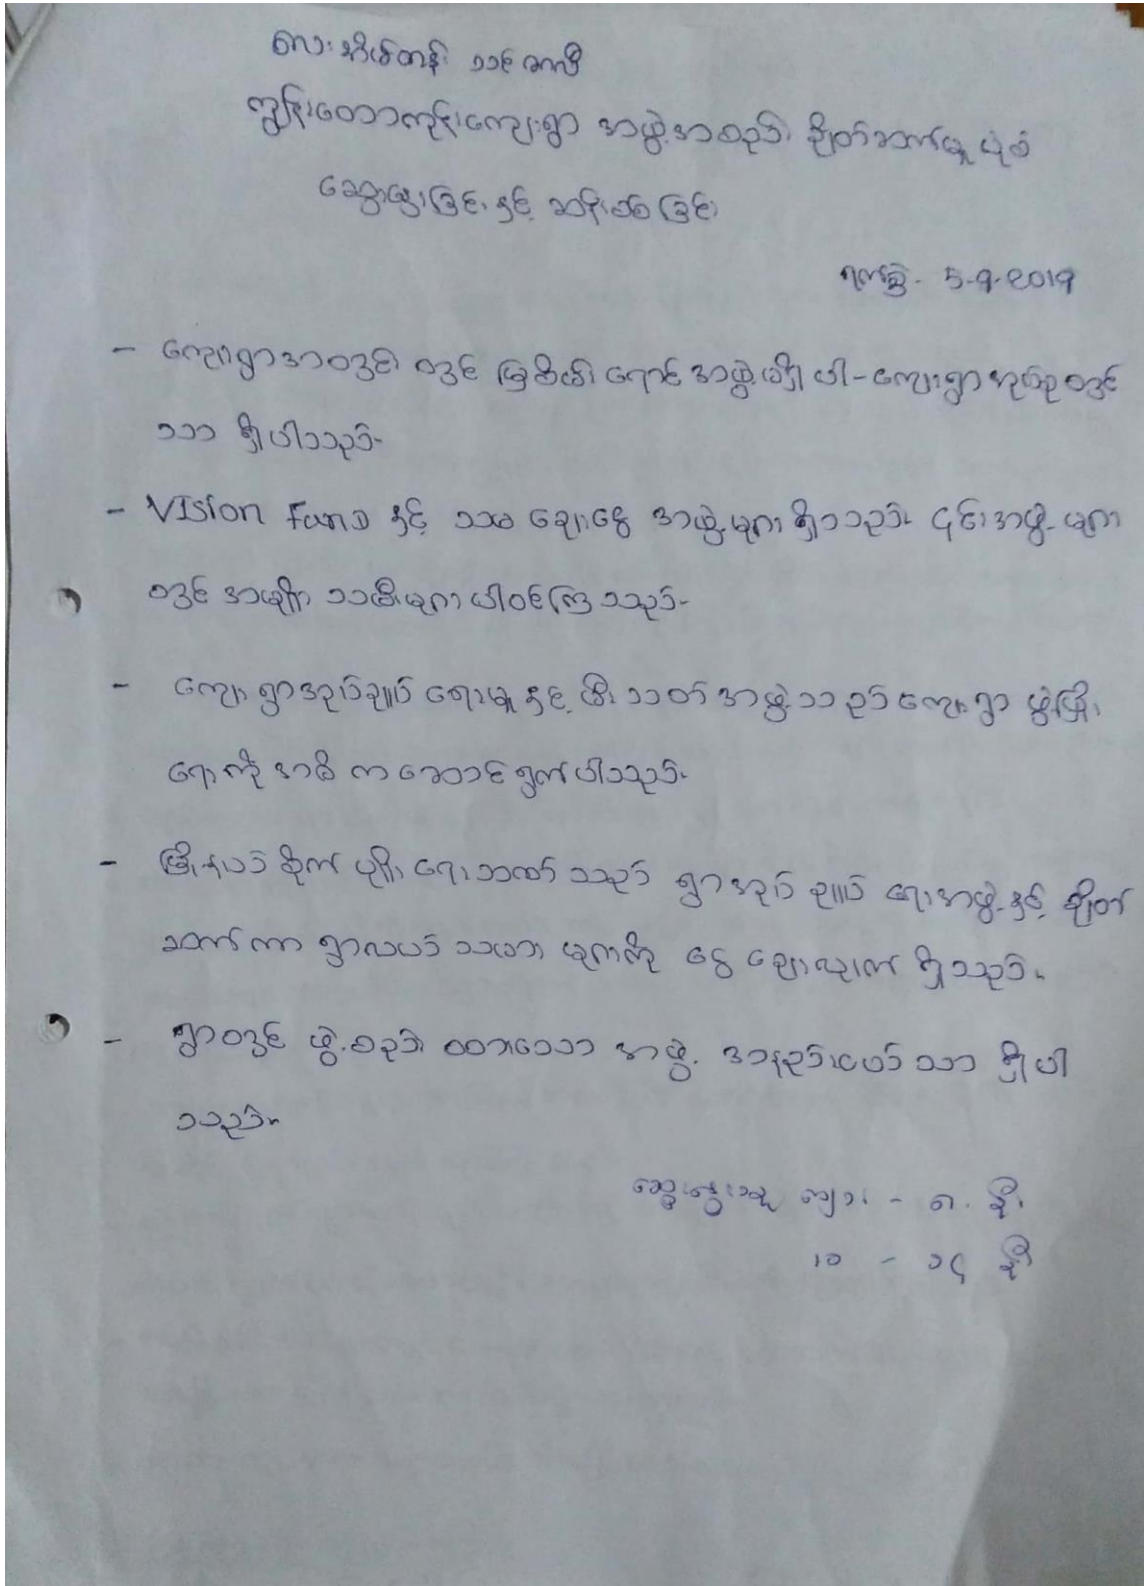 လေးအိမ်တန်း သင်္ဘောလီ
ကျွန်းတောကုန်းကျေးရွာ အဖွဲ့အစည်း ချိတ်ဆက်မှု ပုံစံ
ဆွေးနွေးခြင်း နှင့် ဆန်းစစ်ခြင်း
ရက်စွဲ - 5-9-2019
- ကျေးရွာအတွင်း တွင် မြစိမ်းရောင် အဖွဲ့မရှိပါ - ကျေးရွာအုပ်စုတွင်
သာ ရှိပါသည်။
- VIsion Fund နှင့် သမ ချေးငွေ အဖွဲ့များရှိသည်။ ၎င်းအဖွဲ့များ
တွင် အမျိုးသမီးများပါဝင်ကြသည်။
- ကျေးရွာအုပ်ချုပ်ရေးမှူးနှင့် မီးသတ်အဖွဲ့သည် ကျေးရွာ ဖွံ့ဖြိုး
ရေးကို အဓိက ဆောင်ရွက်ပါသည်။
- မြို့နယ် စိုက်ပျိုးရေးဘဏ် သည် ရွာအုပ်ချုပ်ရေးအဖွဲ့နှင့် ချိတ်
ဆက်ကာ ရွာလယ်သမားများကို ငွေချေးလျက်ရှိသည်။
- ရွာတွင် ဖွဲ့စည်းထားသော အဖွဲ့ အနည်းငယ်သာ ရှိပါ
သည်။
ဆွေးနွေးသူ ကျား - ၈ ဦး
မ - ၁၄ ဦး